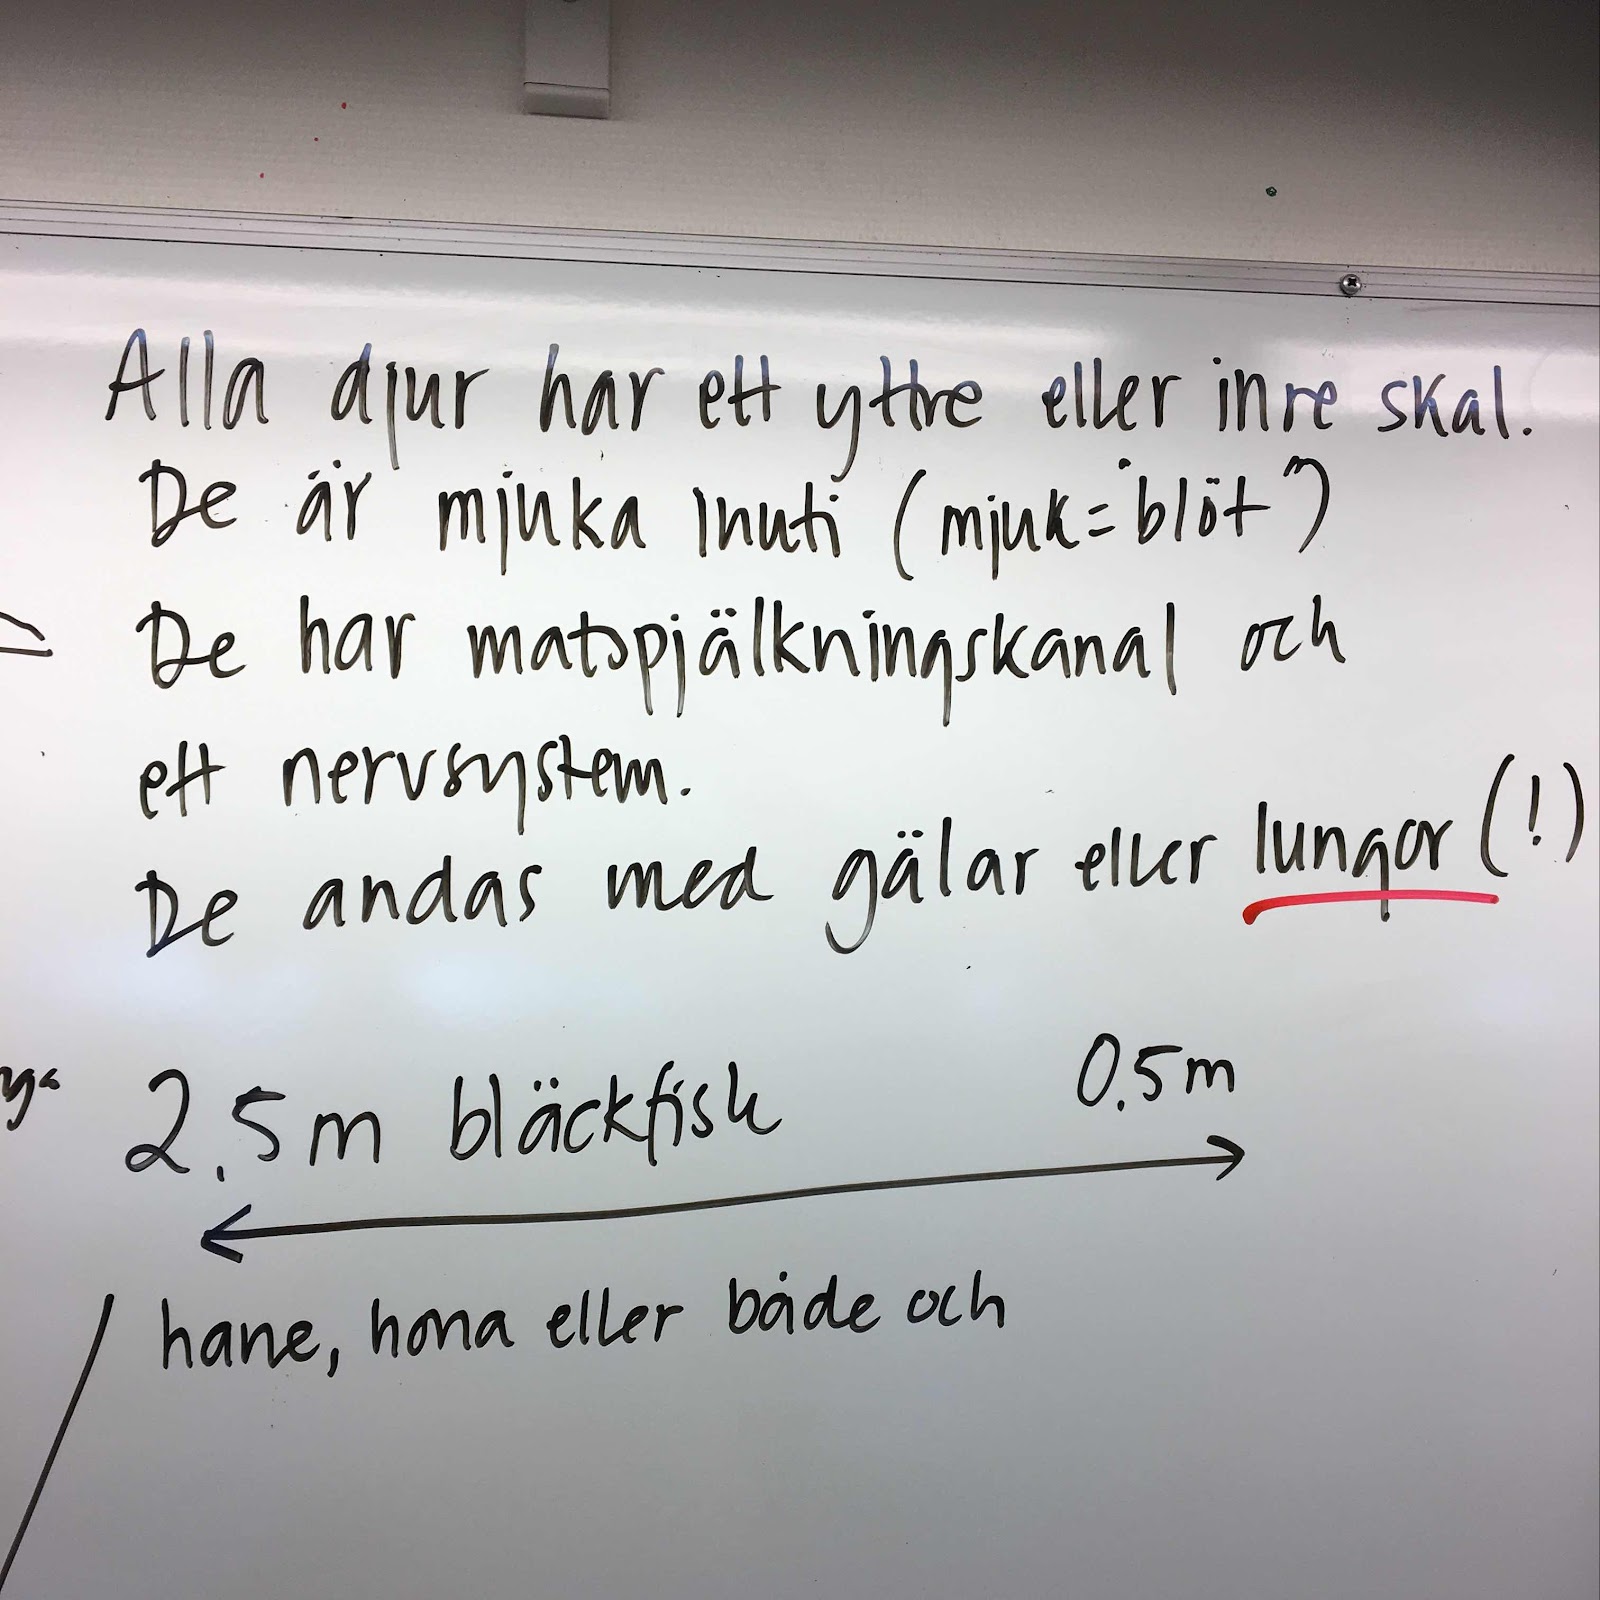 Alla djur har ett yttre eller inre skal.
De är mjuka inuti (mjuk="blöt")
De har matspjälkningskanal och
ett nervsystem.
De andas med gälar eller lungor (!)
2.5m bläckfisk
0.5m
hane, hona eller både och